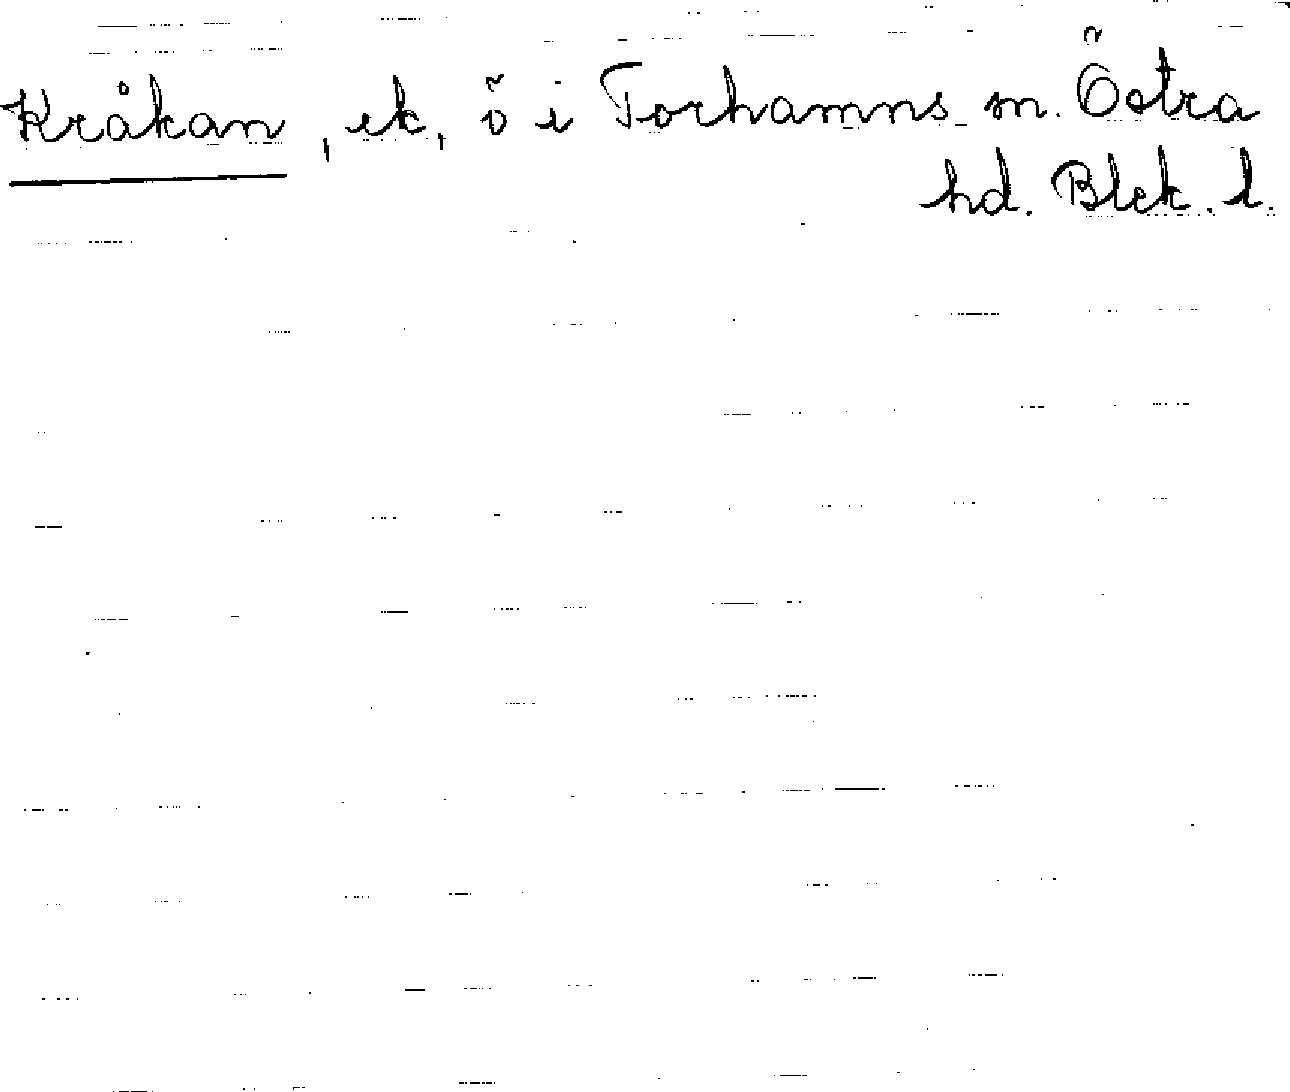 Kråkan, ek, ö i Torhamns sn. Östra
hd. Blek. l.